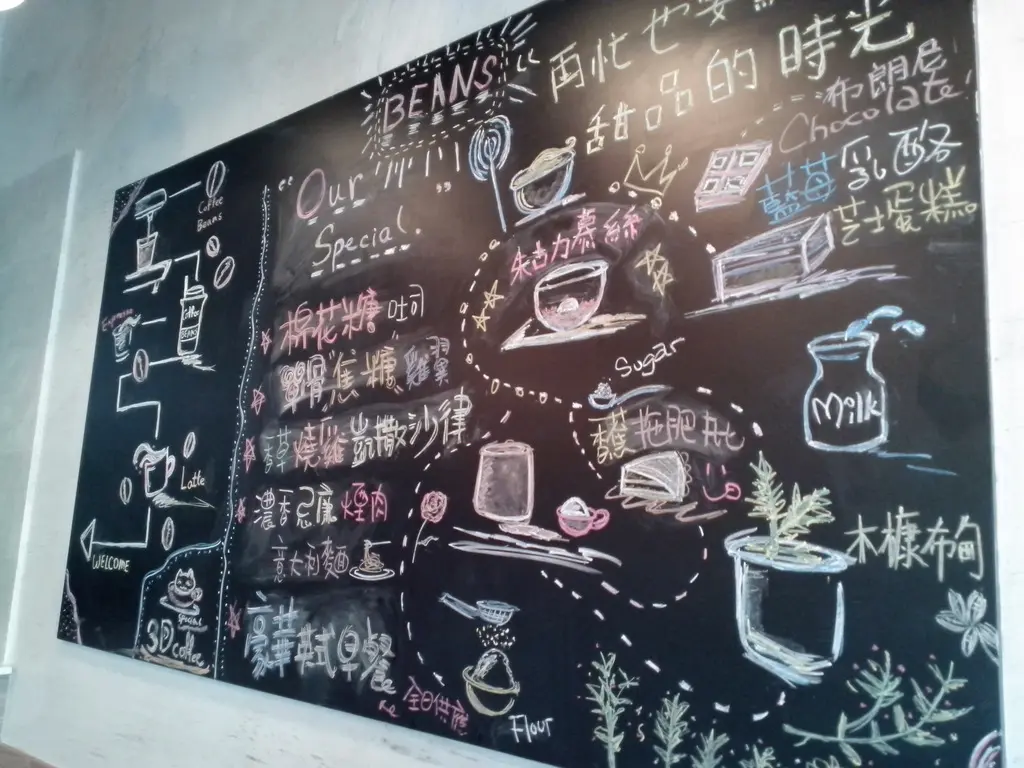 BEANS
再忙也要
甜品的時光
布朗尼
Chocolate!
藍莓乳酪
芝士蛋糕
Coffee
Beans
"Our
Special."
朱古力慕絲
Espresso
Coffee
BEANS
棉花糖吐司
焦糖雞翼
Sugar
香草燒雞凱撒沙律
香蕉拖肥批
Milk
濃香忌廉煙肉
意大利麵
Latte
WELCOME
木糠布甸
special
3D coffee
豪華英式早餐
全日供應
Flour